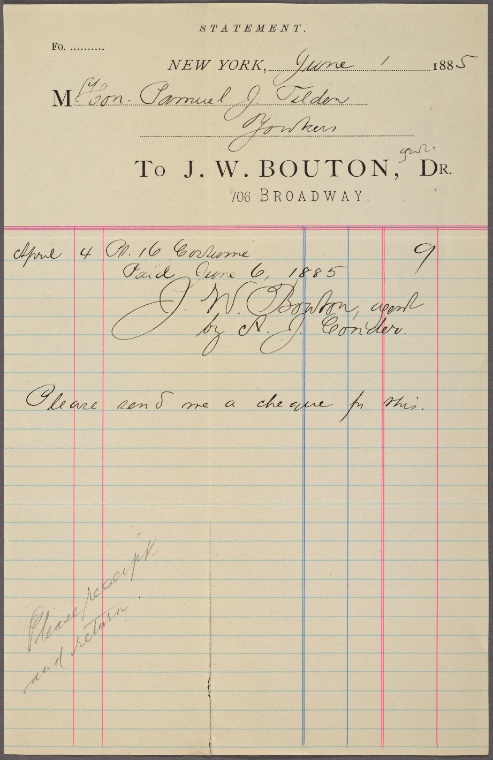 STATEMENT.
Fo. ..........
NEW YORK, June 1 1885
M Hon. Samuel J Tilden
Yonkers
To J. W. BOUTON, agent DR.
706 BROADWAY
April 4 Pt. 16 Costume 9
Paid June 6, 1885
J. W. Bouton, agent
by A. J.
Please send me a cheque for this.
Please receipt
and return